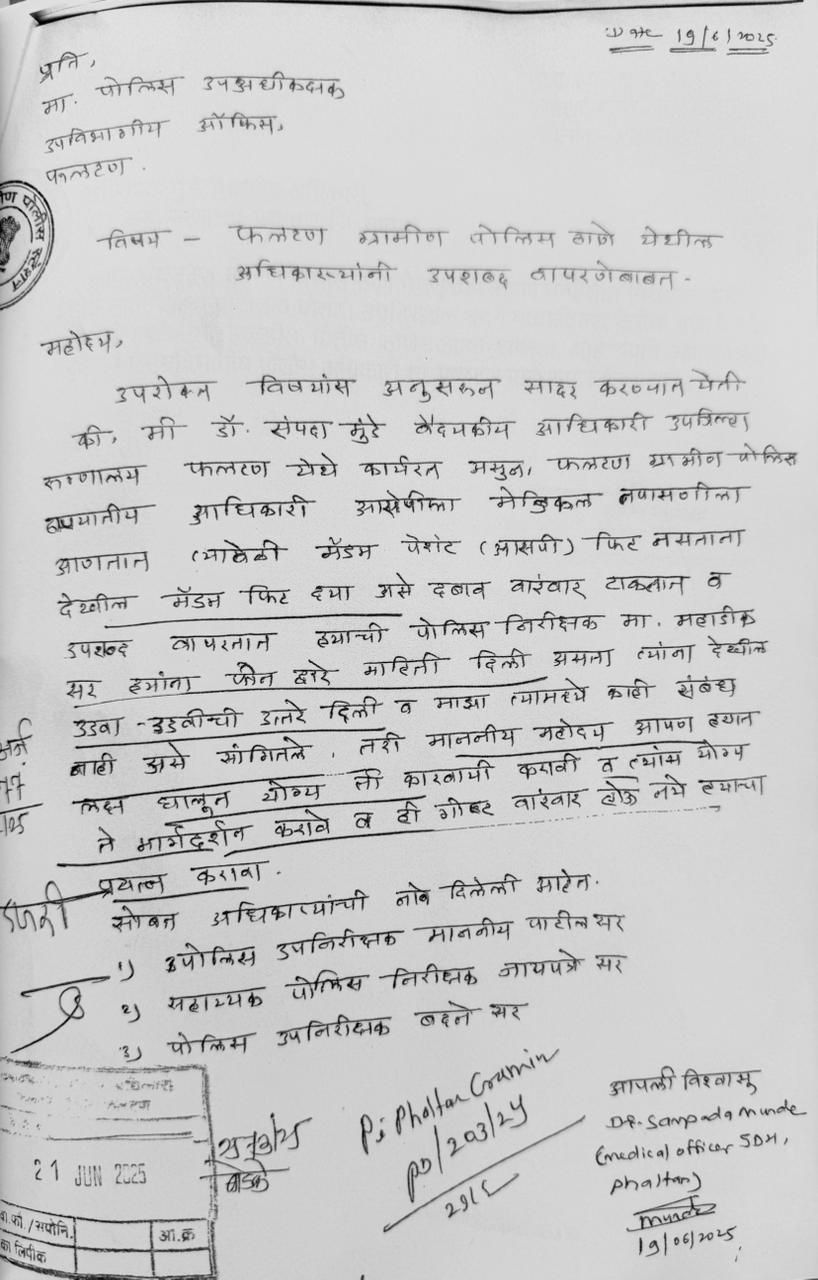 Date 19/6/2025
प्रति,
मा. पोलिस उपअधीकक्षक
उपविभागीय ऑफिस,
फलटण.
विषय - फलटण ग्रामीण पोलिस ठाणे येथील
अधिकाऱ्यांनी उपशब्द वापरणेबाबत.
महोदय,
उपरोक्त विषयांस अनुसरून सादर करण्यात येती
की, मी डॉ. संपदा मुंडे वैदयकीय आधिकारी उपजिल्हा
रुग्णालय फलटण येथे कार्यरत असुन, फलटण ग्रामीण पोलिस
आधिकारी आरोपीला मेडिकल तपासणीला
आणतात त्यावेळी मॅडम पेशंट (आरोपी) फिट नसताना
देखील मॅडम फिट दया असे दबाव वारंवार टाकतात व
उपशब्द वापरतात ह्याची पोलिस निरीक्षक मा. महाडीक
सर ह्यांना फोन द्वारे माहिती दिली असता त्यांना देखील
उडवा-उडवीची उत्तरे दिली व माझा त्यामध्ये काही संबंध
नाही असे सांगितले. तरी माननीय महोदय आपण ह्यात
लक्ष घालून योग्य ती कारवायी करावी व त्यांस योग्य
ते मार्गदर्शन करावे व ही गोष्ट वारंवार होऊ नये ह्याचा
प्रयत्न करावा.
सोबत अधिकाऱ्यांची नावे दिलेली आहेत.
1) पोलिस उपनिरीक्षक माननीय पाटील सर
2) सहाय्यक पोलिस निरीक्षक जायपत्रे सर
3) पोलिस उपनिरीक्षक बदने सर
आपली विश्वासू
Dr. Sampada Munde
(medical officer SDH,
phaltan)
Munde
19/06/2025
Pi Phaltan Gramin
21 JUN 2025
आ.क्र